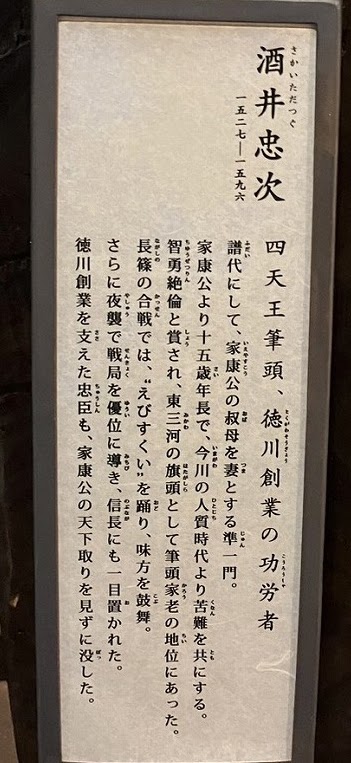 酒井忠次
さかいただつぐ
一五二七―一五九六
四天王筆頭、徳川創業の功労者
譜代にして、家康公の叔母を妻とする準一門。
家康公より十五歳年長で、今川の人質時代より苦難を共にする。
智勇絶倫と賞され、東三河の旗頭として筆頭家老の地位にあった。
長篠の合戦では、“えびすくい”を踊り、味方を鼓舞。
さらに夜襲で戦局を優位に導き、信長にも一目置かれた。
徳川創業を支えた忠臣も、家康公の天下取りを見ずに没した。